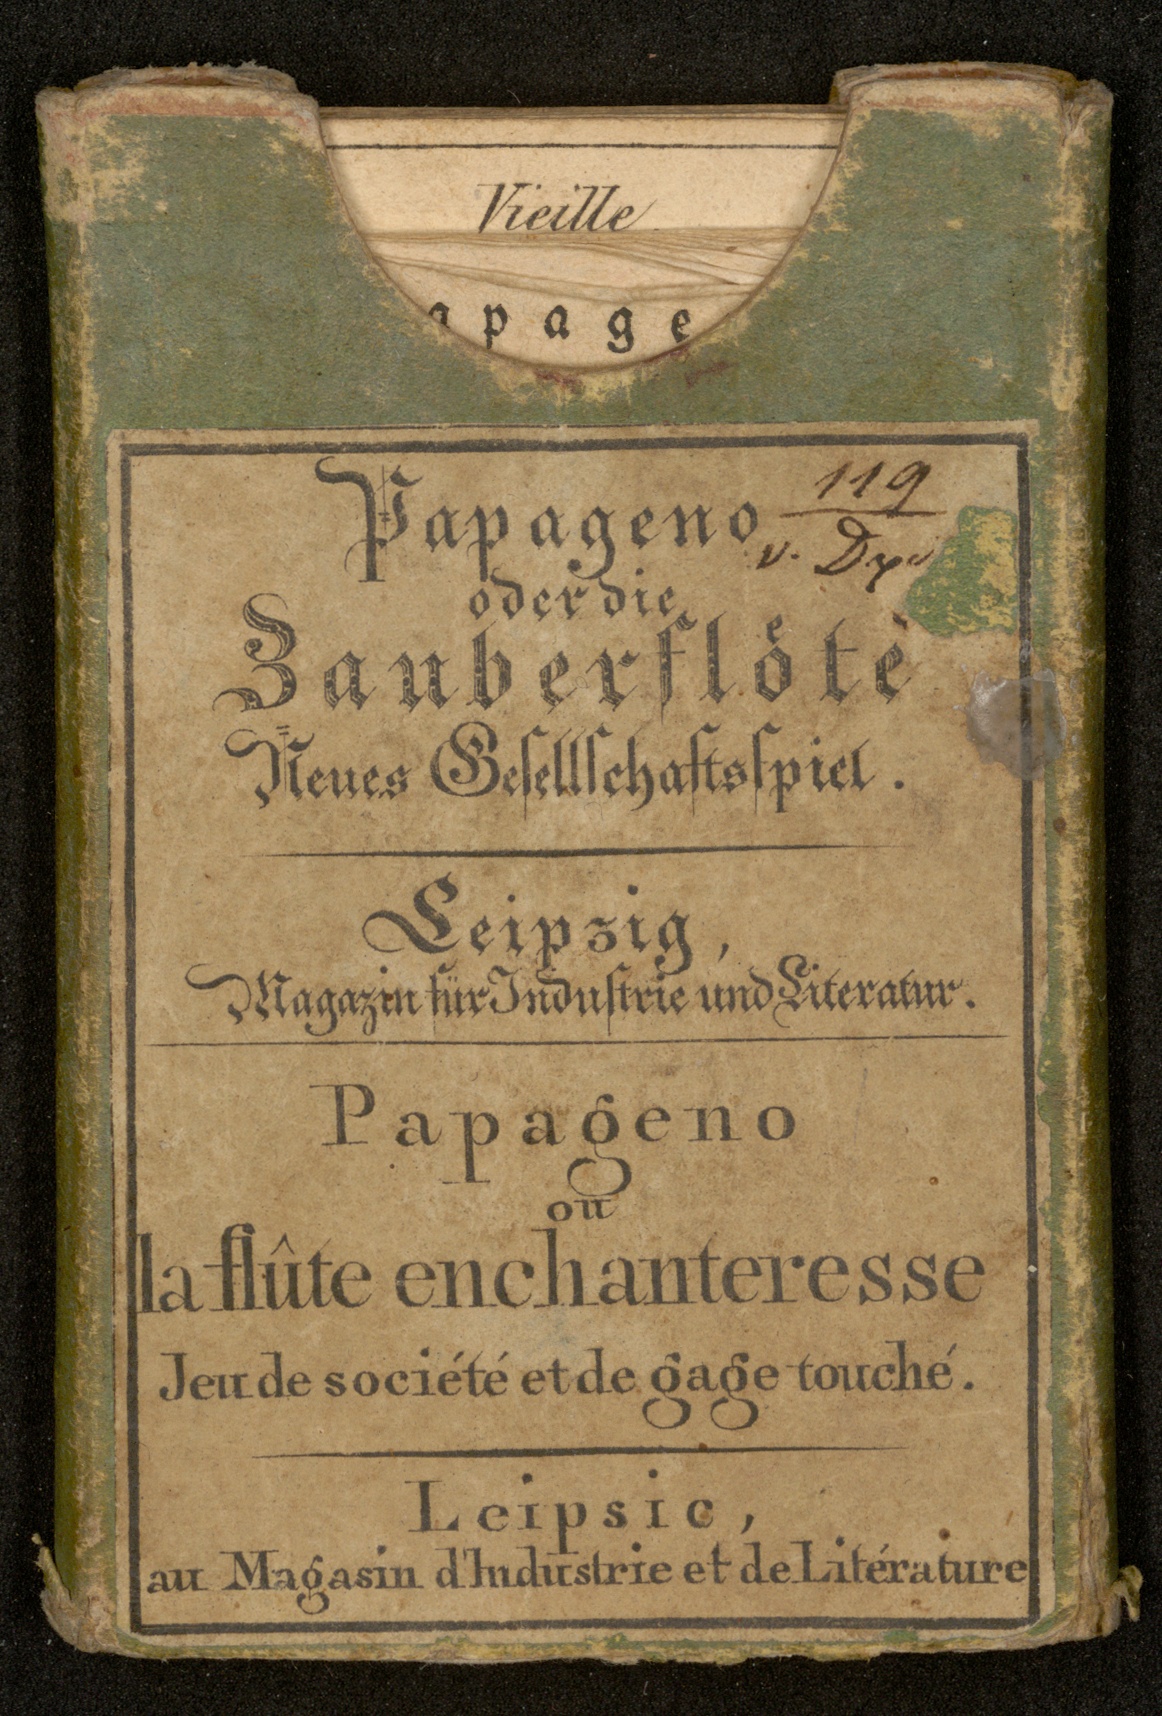 Vieille
apage
Papageno
119
oder die
Zauberflöte
Neues Geſellſchaftsſpiel.
Leipzig,
Magazin für Induſtrie und Literatur.
Papageno
ou
la flûte enchanteresse
Jeu de société et de gage touché.
Leipsic,
au Magasin d'Industrie et de Litérature